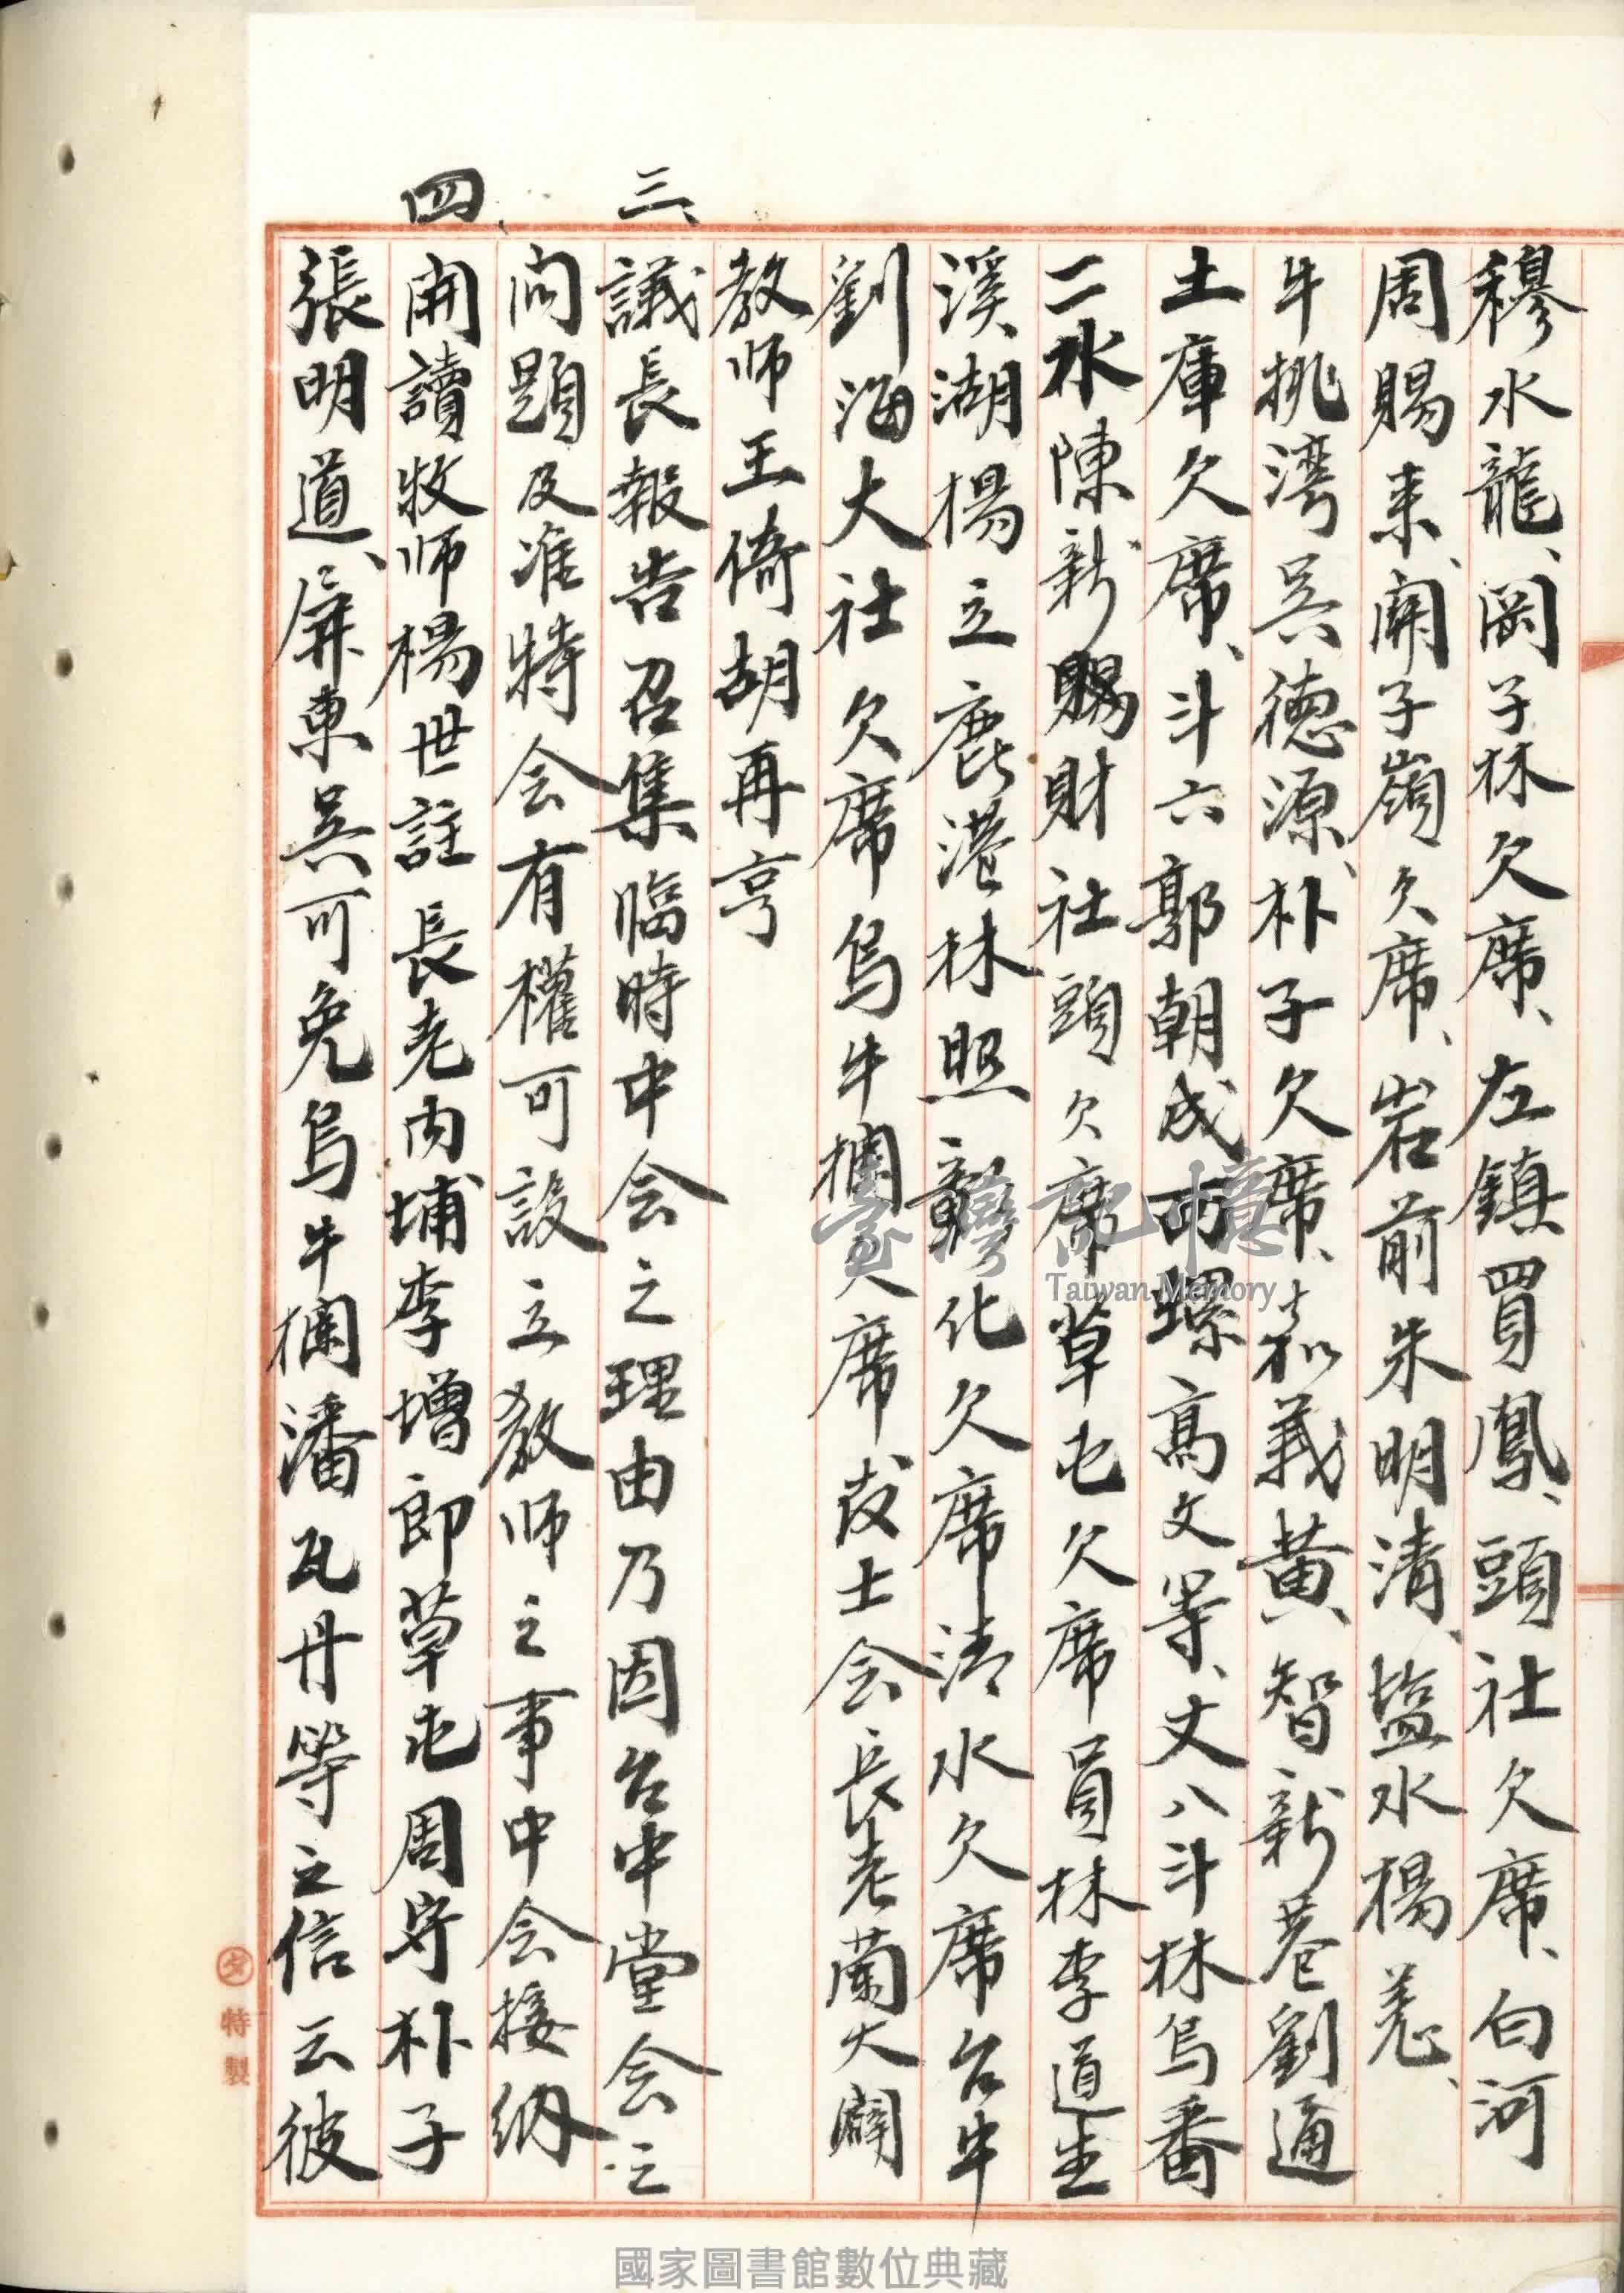 穆水龍、岡子林欠席、左鎮買鳳、頭社欠席、白河
周賜来、関子嶺欠席、岩前朱明清、塩水楊羌、
牛挑湾吴德源、朴子欠席、嘉義黄智、新巷劉通
土庫欠席、斗六郭朝成西螺高文等、丈八斗林烏番
二水陳新賜財社頭欠席草屯欠席員林李道生
溪湖楊立鹿港林照彰化欠席清水欠席台中
劉海大社欠席烏牛欄欠席战士会長老蘭大闢
教师王倚胡再亨
三、議長報告召集臨時中会之理由乃因台中堂会之
问題及准特会有權可設立教师之事中会接納
四、開讀牧师楊世註長老内埔李增郎草屯周守朴子
張明道、屏東吴可免烏牛欄潘瓦丹等之信云彼
タ特製
臺灣記憶
Taiwan Memory
國家圖書館數位典藏